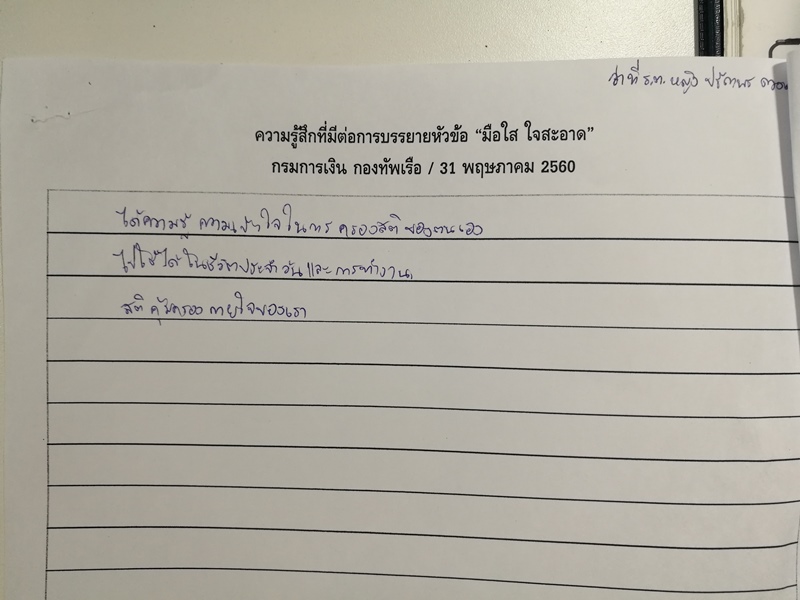 ว่าที่ ร.ต. หญิง
ความรู้สึกที่มีต่อการบรรยายหัวข้อ “มือใส ใจสะอาด”
กรมการเงิน กองทัพเรือ / 31 พฤษภาคม 2560
ได้ความรู้ ความเข้าใจในการ ครองสติ ของตนเอง
ไปใช้ได้ ในชีวิตประจำวัน และ การทำงาน
สติ คุ้มครอง กายใจของเรา